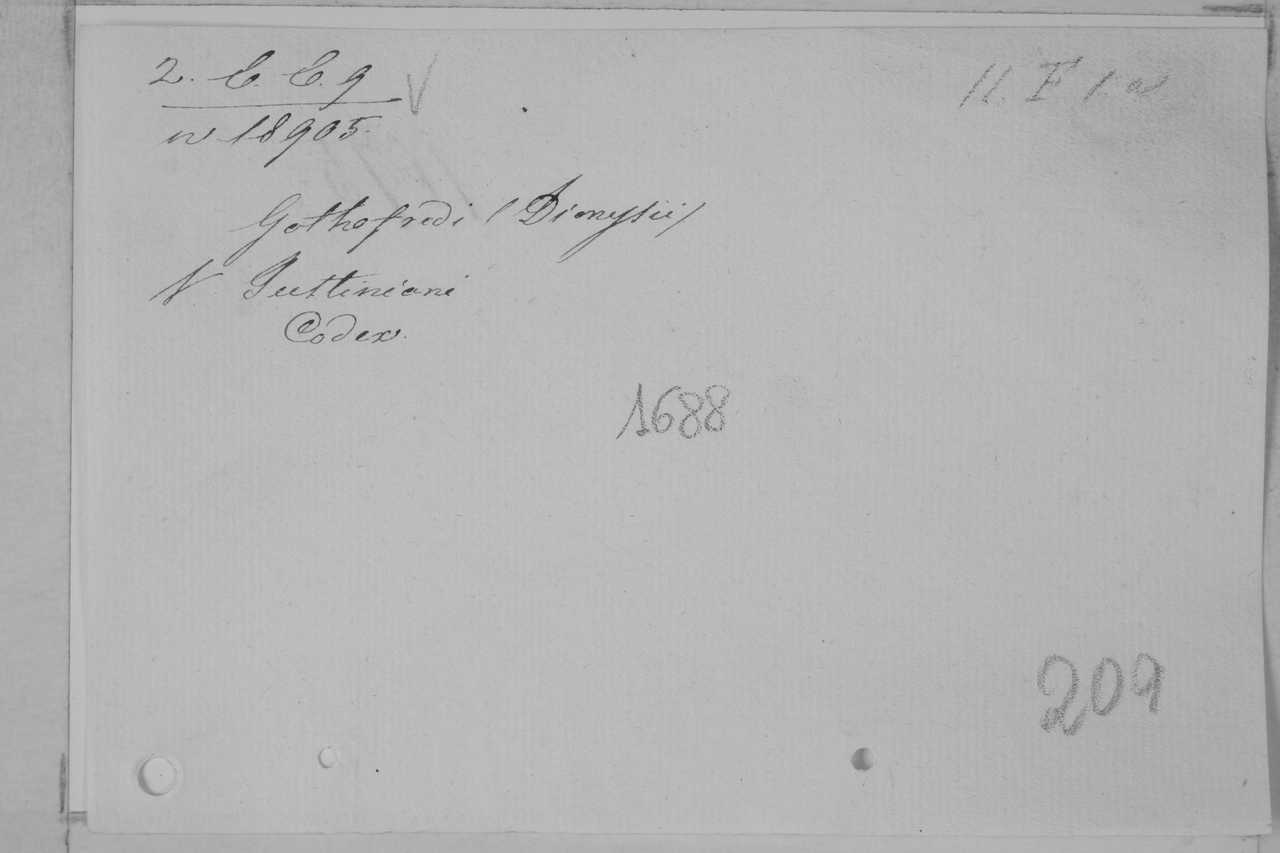 2. E. E. 9
11. F 1. a
n 18905.
Gothofredi (Dionysii)
V. Justiniani
Codex.
1688
209